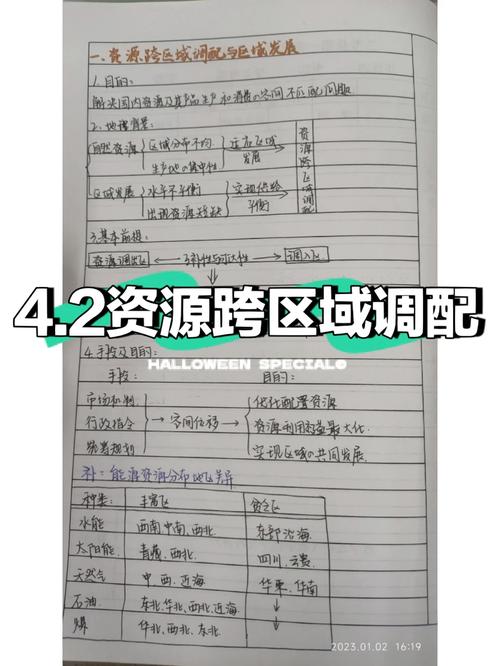 一、资源跨区域调配与区域发展
1.目的:
解决国内资源及其产品生产和消费的空间不匹配问题
2.地理背景:
自然资源 区域分布不均 适应区域 资源跨区域调配
生产地的集中性 发展
区域发展 水平不平衡 实现供给
出现资源短缺 平衡
3.基本前提:
资源调出区 ←互补性与可达性→ 调入区
4.2资源跨区域调配
HALLOWEEN SPECIAL@
4.手段及目的:
手段: 目的:
市场机制 优化配置资源
行政指令 → 空间位移 → 资源利用效益最大化
统筹规划 实现区域の共同发展
补:能源资源分布地区差异
种类: 丰富区 贫乏区
水能 西南、中南、西北 东部沿海
太阳能 青藏、西北 四川、云贵
天然气 中、西、近海 华东、华南
石油 东北、华北、西北、近海 ↓
煤 华北、西北、东北 ↓
2023.01.02 16:19